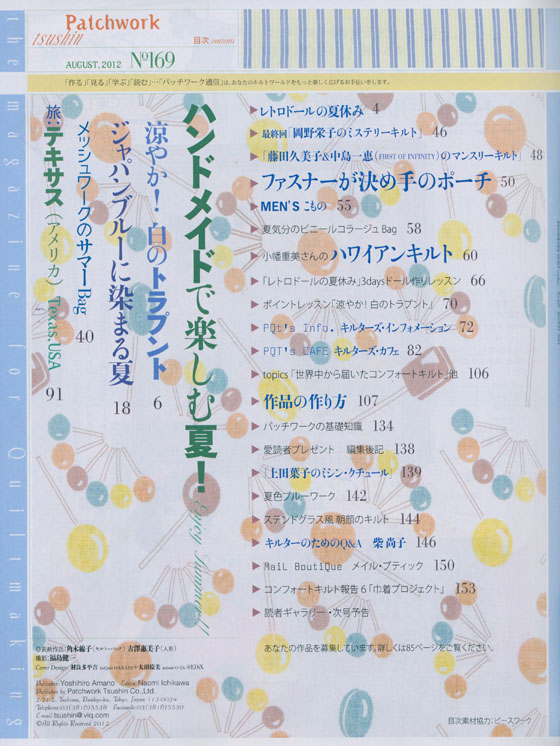 Patchwork
tsushin
AUGUST, 2012 No169
目次 contents
「作る」「見る」「学ぶ」「読む」…「パッチワーク通信」は、あなたのキルトワールドをもっと楽しく広げるお手伝いをします。
the magazine for Quiltmaking
ハンドメイドで楽しむ夏!
Enjoy Summer!!
涼やか!白のトラプント 6
ジャパンブルーに染まる夏 18
メッシュワークのサマーBag 40
旅:テキサス(アメリカ) Texas,USA 91
▶レトロドールの夏休み 4
▶最終回「岡野栄子のミステリーキルト」 46
▶「藤田久美子&中島一恵(FIRST OF INFINITY)のマンスリーキルト」 48
▶ファスナーが決め手のポーチ 50
▶MEN'S こもの 55
▶夏気分のビニールコラージュBag 58
▶小幡重美さんのハワイアンキルト 60
▶「レトロドールの夏休み」3daysドール作りレッスン 66
▶ポイントレッスン「涼やか!白のトラプント」 70
▶PQt's Info. キルターズ・インフォメーション 72
▶PQT's CAFE キルターズ・カフェ 82
▶topics「世界中から届いたコンフォートキルト」他 106
▶作品の作り方 107
▶パッチワークの基礎知識 134
▶愛読者プレゼント 編集後記 138
▶「上田葉子のミシン・クチュール」 139
▶夏色ブルーワーク 142
▶ステンドグラス風 朝顔のキルト 144
▶キルターのためのQ&A 柴 尚子 146
▶Mail Boutique メイル・ブティック 150
▶コンフォートキルト報告6「巾着プロジェクト」 153
▶読者ギャラリー・次号予告
あなたの作品を募集しています。詳しくは85ページをご覧ください。
©表紙作品/角本綾子(モロッコ・バッグ) 古澤惠美子(人形)
撮影/福島健一
Publisher: Yoshihiro Amano Editor: Naomi Ichikawa
Publisher by Patchwork Tsushin Co.,Ltd.
Telephone:03(3816)5538 Facsimile:03(3816)5530
E-mail: tsushin@viq.com
©All Rights Reserved 2012
目次素材協力:ピースワーク